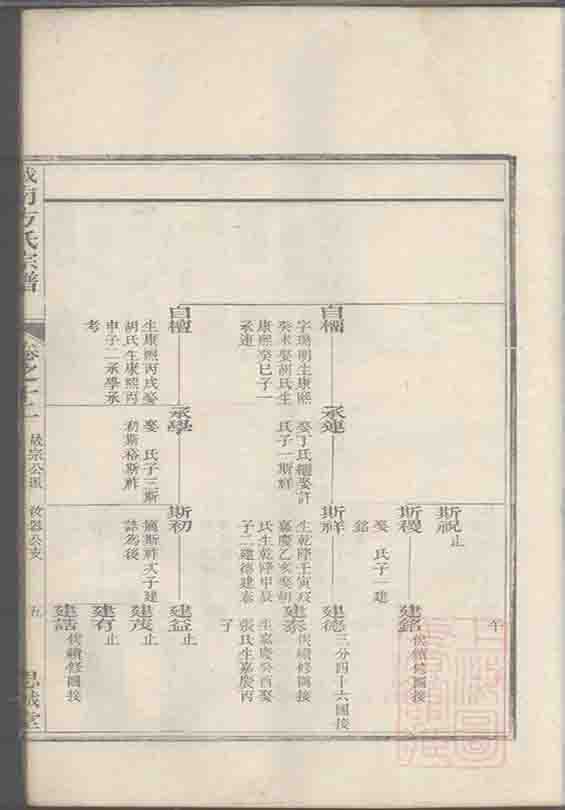 午
斯祝
止
斯稷
娶　氏子一建
銘
建銘
俟續修圖接
自檽
字瑞明生康熙
癸未娶胡氏生
康熙癸巳子一
承連
承連
娶丁氏繼娶許
氏子一斯祥
斯祥
生乾隆壬寅歿
嘉慶乙亥娶胡
氏生乾隆甲辰
子二建德建泰
建德
三分四十六圖接
建泰
俟續修圖接
生嘉慶癸酉娶
張氏生嘉慶丙
子
自檀
生康熙丙戌娶
胡氏生康熙丙
申子二承學承
考
承學
娶　氏子三斯
初斯裕斯祚
斯初
繼斯祚次子建
誌為後
建益
止
建茂
止
建有
止
建誌
俟續修圖接
城南方氏宗譜
卷之十二
晟宗公派
汝器公支
五
思誠堂
上海圖
書館藏